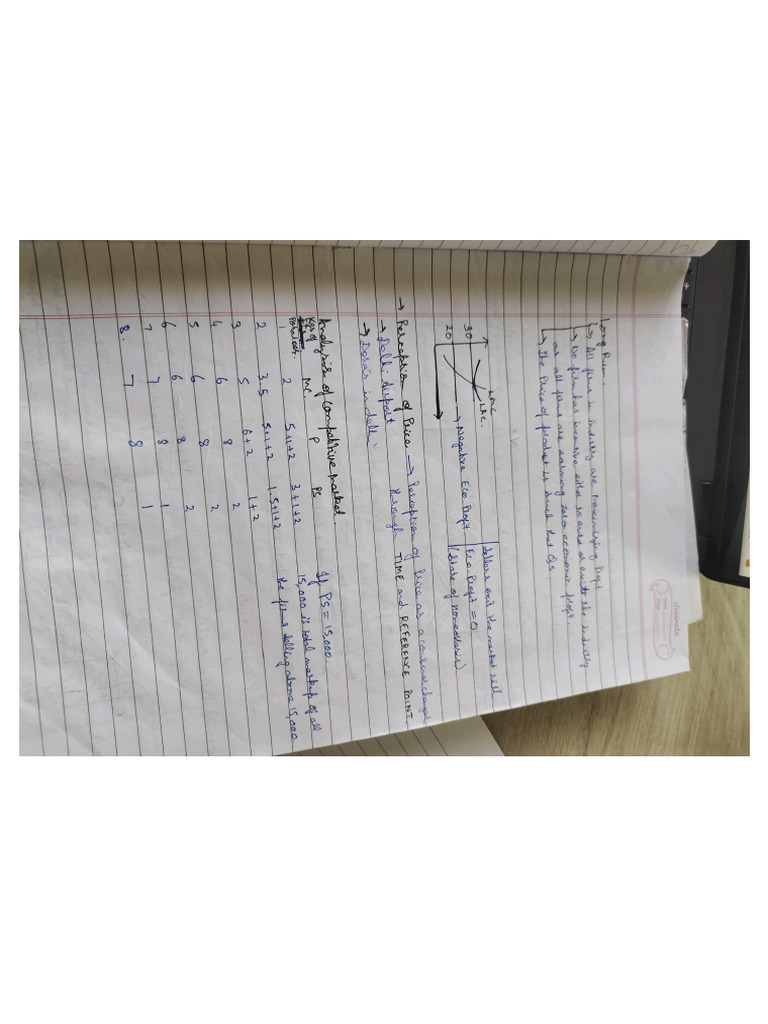 Classmate
Date
Page
Long Run.
↳ All firms in industry are maximizing Profit
↳ No firm has incentive either to enter or exit the industry
as all firms are earning zero economic profit
↳ The Price of product is such that
LMC
LAC.
30
20
→ Negative Eco Profit
Sellers exit the market till
Eco. Profit = 0
(State of nomeostasis)
→ Perception of Price → Perception of Price as a consumer changes
through TIME and REFERENCE POINT.
→ Dolli
→ Dosa's in delhi
Analysis of Competitive market.
Kgs of Potatoes. MC. P PS
1 2 5+1+2 3+1+2
2 3.5 5+1+2 1.5+1+2
3 5 6+2 1+2
4 6 8 2
5 6 8 2
6 6 8
7 7 8 1
8. 7 8 1
If PS = 15,000
15,000 is total markup of all
the firms selling above 15,000